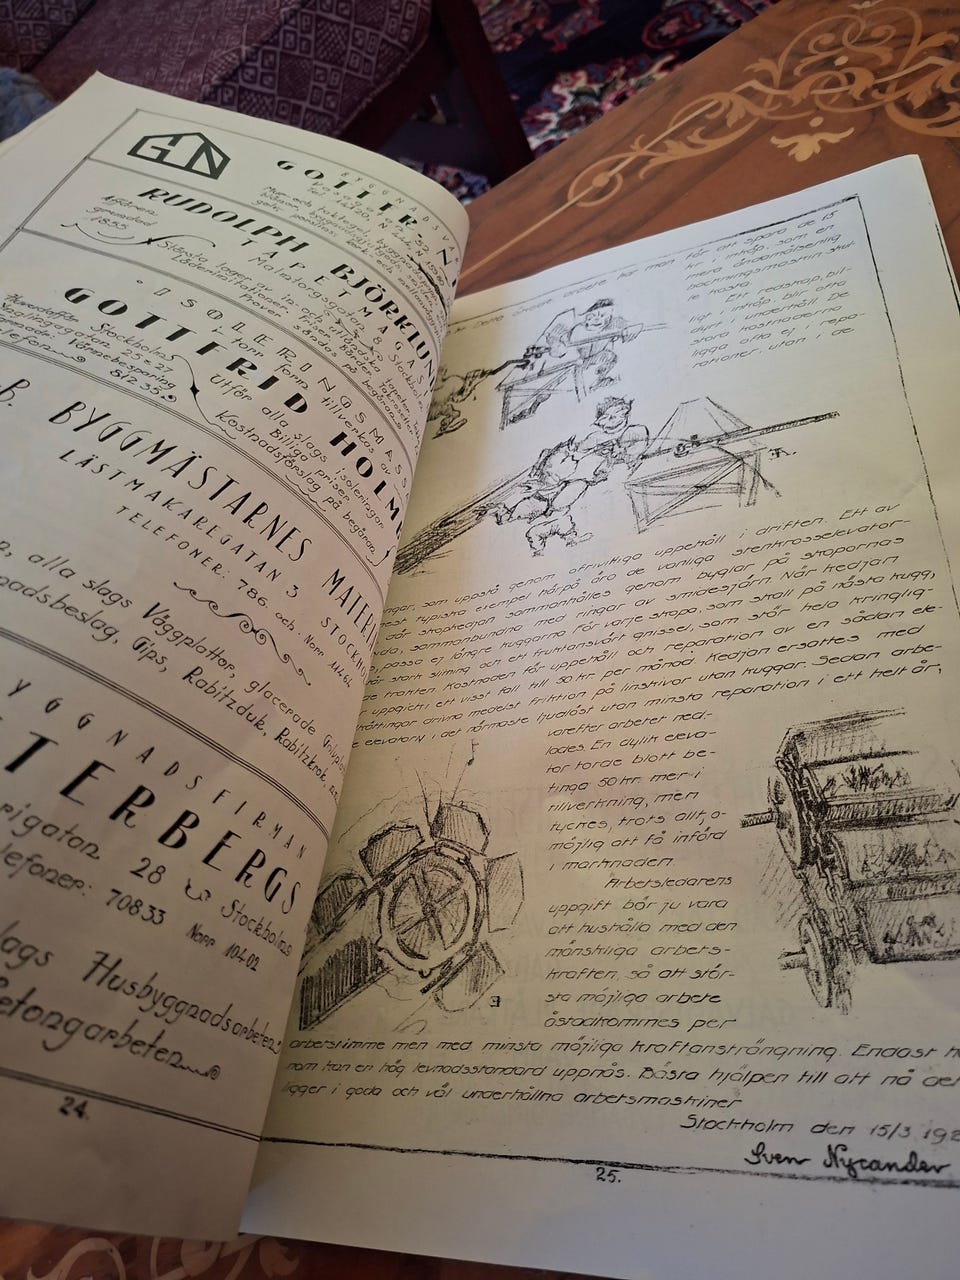 GHN
BYGGNADSVA
GOTTFR
Vasag
RUDOLPH BJÖRKLUND
TAPETMAGASI
Affären
grundad
1855
Malmtorgsgatan 8 Stockholm
Största lager av in- och utländska tapeter
Prover sändes på begäran
ISOLERINGSMASS
GOTTFRID HOLM
Huvudaffär Stockholm
Utför alla slags isoleringar
Billiga priser
Kostnadsförslag på begäran
81235
B. BYGGMÄSTARNES MATERI
LÄSTMAKAREGATAN 3 STOCKHO
TELEFONER: 786, och Norr 11464
alla slags Väggplattor, glacerade Golvpla
nadsbeslag, Gips, Rabitzduk, Rabitzkrok
YGGNADSFIRMAN
TERBERGS
rigatan 28 Stockholm
lefoner: 70833 Norr 10402
lags Husbyggnadsarbeten
Betongarbeten
24.
Detta arbete har man för att spara de 15
kr. i inköp, som en
mera ändamålsenlig
bockningsmaskin skul-
le kosta.
Ett redskap, bil-
ligt i inköp, blir ofta
dyrt i underhåll. De
stora kostnaderna
ligga ofta ej i repa-
rationer, utan i de
ngar, som uppstå genom ofrivilliga uppehåll i driften. Ett av
mest typiska exempel härpå äro de vanliga stenkrosselevator-
där skopkedjan sammanhålles genom byglar på skopornas
sida, sammanbundna med ringar av smidesjärn. När kedjan
passa ej längre kuggarna för varje skopa, som skall på nästa kugg,
stark slitning och ett fruktansvärt gnissel, som stör hela kringlig-
de trakten. Kostnaden för uppehåll och reparation av en sådan ele-
uppgick i ett visst fall till 50 kr. per månad. Kedjan ersattes med
kättingar drivna medelst friktion på linskivor utan kuggar. Sedan arbe-
te elevatorn i det närmaste ljudlöst utan minsta reparation i ett helt år,
varefter arbetet ned-
lades. En dylik eleva-
tor torde blott be-
tinga 50 kr. mer i
tillverkning, men
tyckes, trots allt, o-
möjlig att få införd
i marknaden.
Arbetsledarens
uppgift bör ju vara
att hushålla med den
mänskliga arbets-
kraften, så att stör-
sta möjliga arbete
åstadkommes per
arbetstimme men med minsta möjliga kraftansträngning. Endast
nom kan en hög levnadsstandard uppnås. Bästa hjälpen till att nå det
ligger i goda och väl underhållna arbetsmaskiner
Stockholm den 15/3 192
Sven Nycander
25.